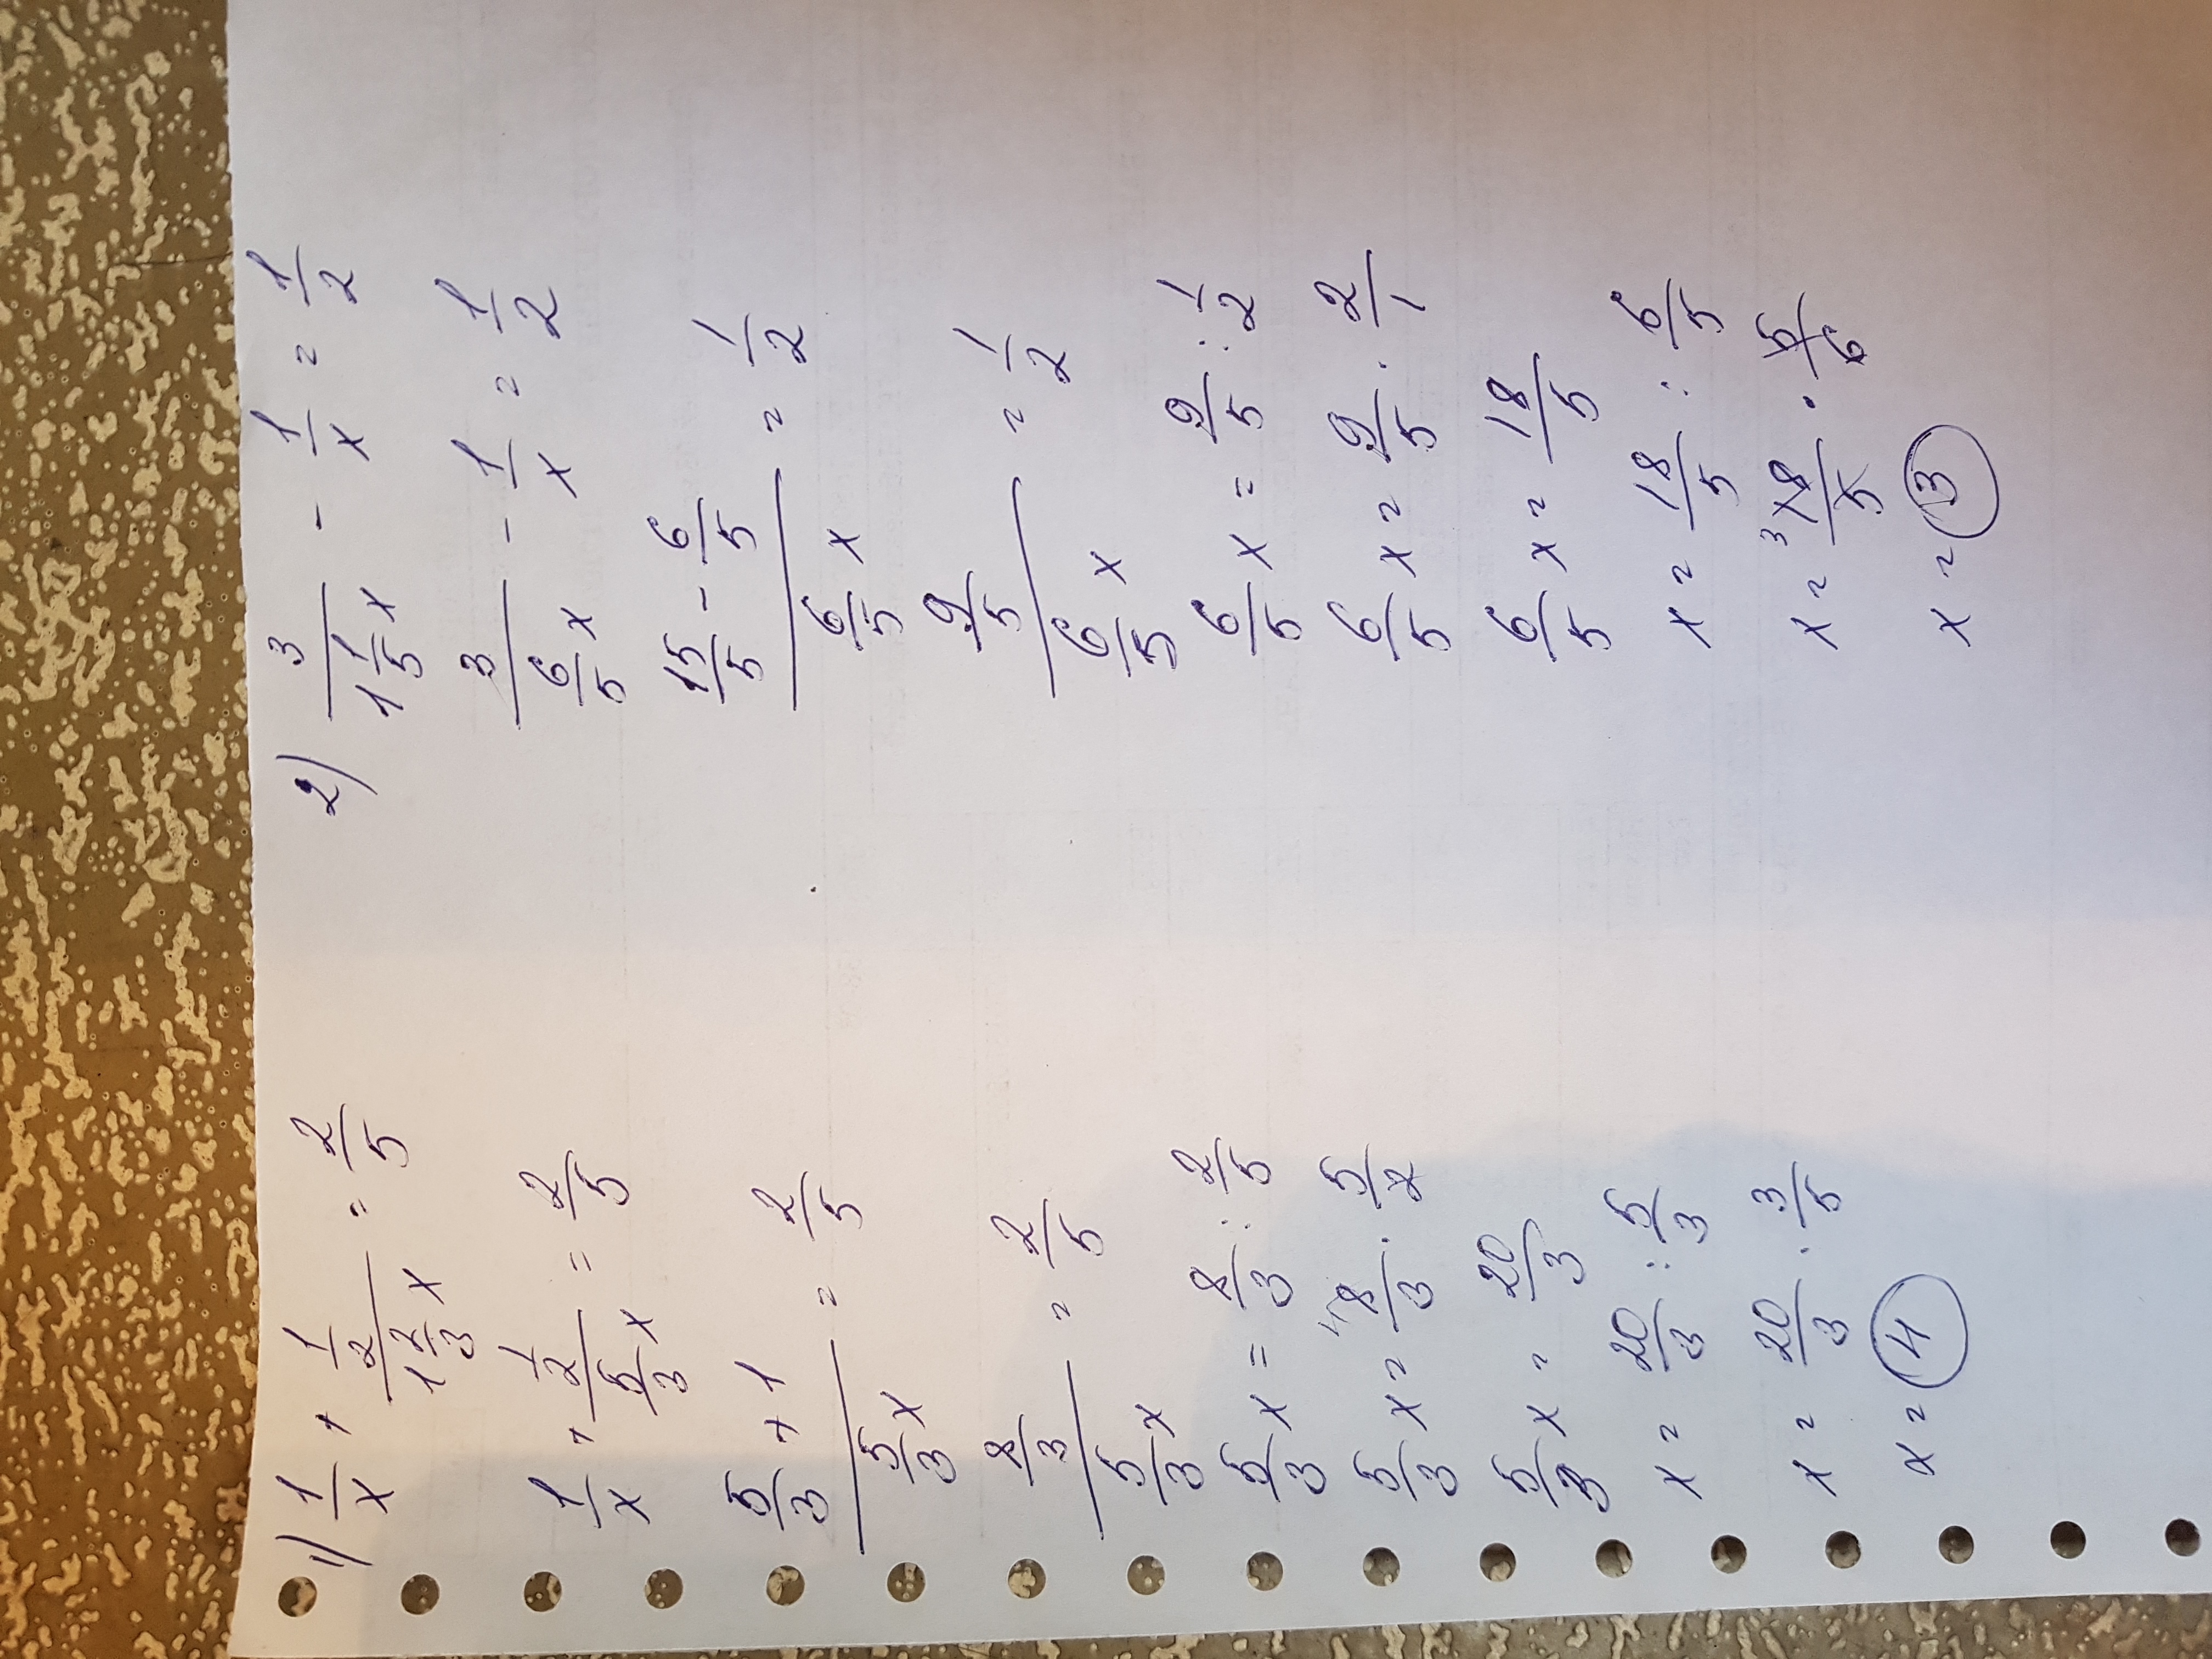 1) 1/x + (1/2)/(1 2/3 x) = 2/5
1/x + (1/2)/(5/3 x) = 2/5
(5/3 + 1)/(5/3 x) = 2/5
(8/3)/(5/3 x) = 2/5
5/3 x = 8/3 : 2/5
5/3 x = 4 8/3 · 5/2
5/3 x = 20/3
x = 20/3 : 5/3
x = 20/3 · 3/5
x = 4
2) 3/(1 1/5 x) - 1/x = 1/2
3/(6/5 x) - 1/x = 1/2
(15/5 - 6/5)/(6/5 x) = 1/2
(9/5)/(6/5 x) = 1/2
6/5 x = 9/5 : 1/2
6/5 x = 9/5 · 2/1
6/5 x = 18/5
x = 18/5 : 6/5
x = 3 18/5 · 5/6
x = 3